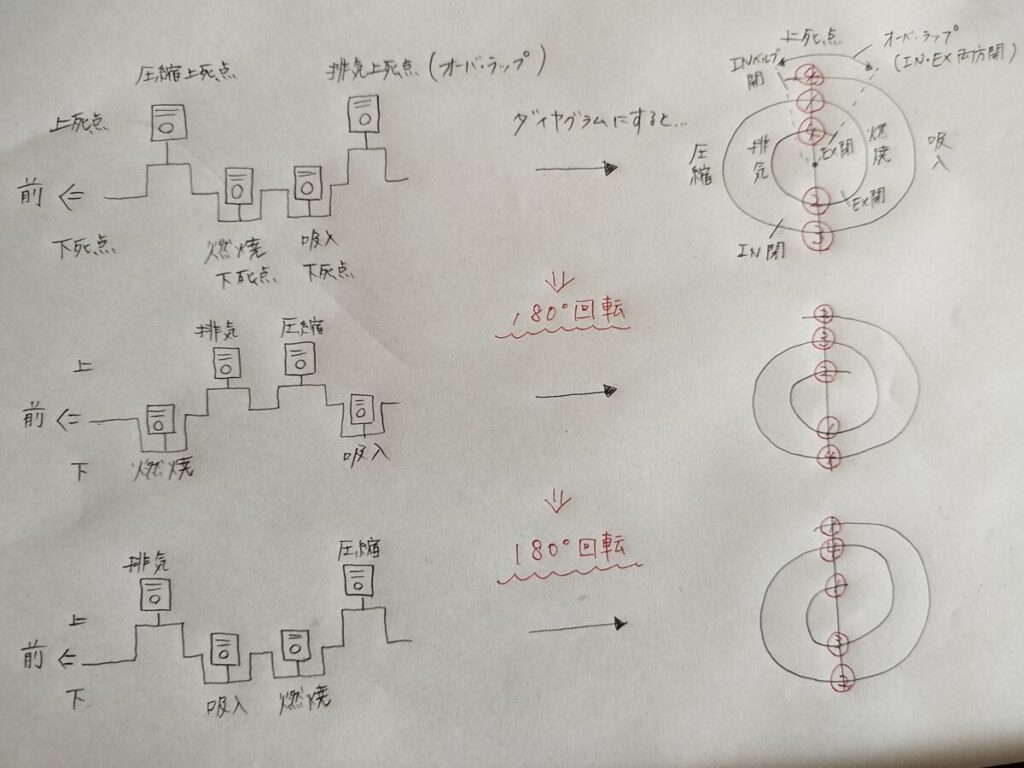 圧縮上死点
排気上死点(オーバ・ラップ)
上死点
前
下死点
燃焼
下死点
吸入
下死点
ダイヤグラムにすると…
上死点
オーバ・ラップ
(IN・EX両方開)
INバルブ
開
圧縮
排気
燃焼
吸入
EX閉
EX開
IN閉
④
①
④
②
③
180°回転
排気
圧縮
上
前
下
燃焼
吸入
②
③
②
①
④
180°回転
排気
圧縮
上
前
下
吸入
燃焼